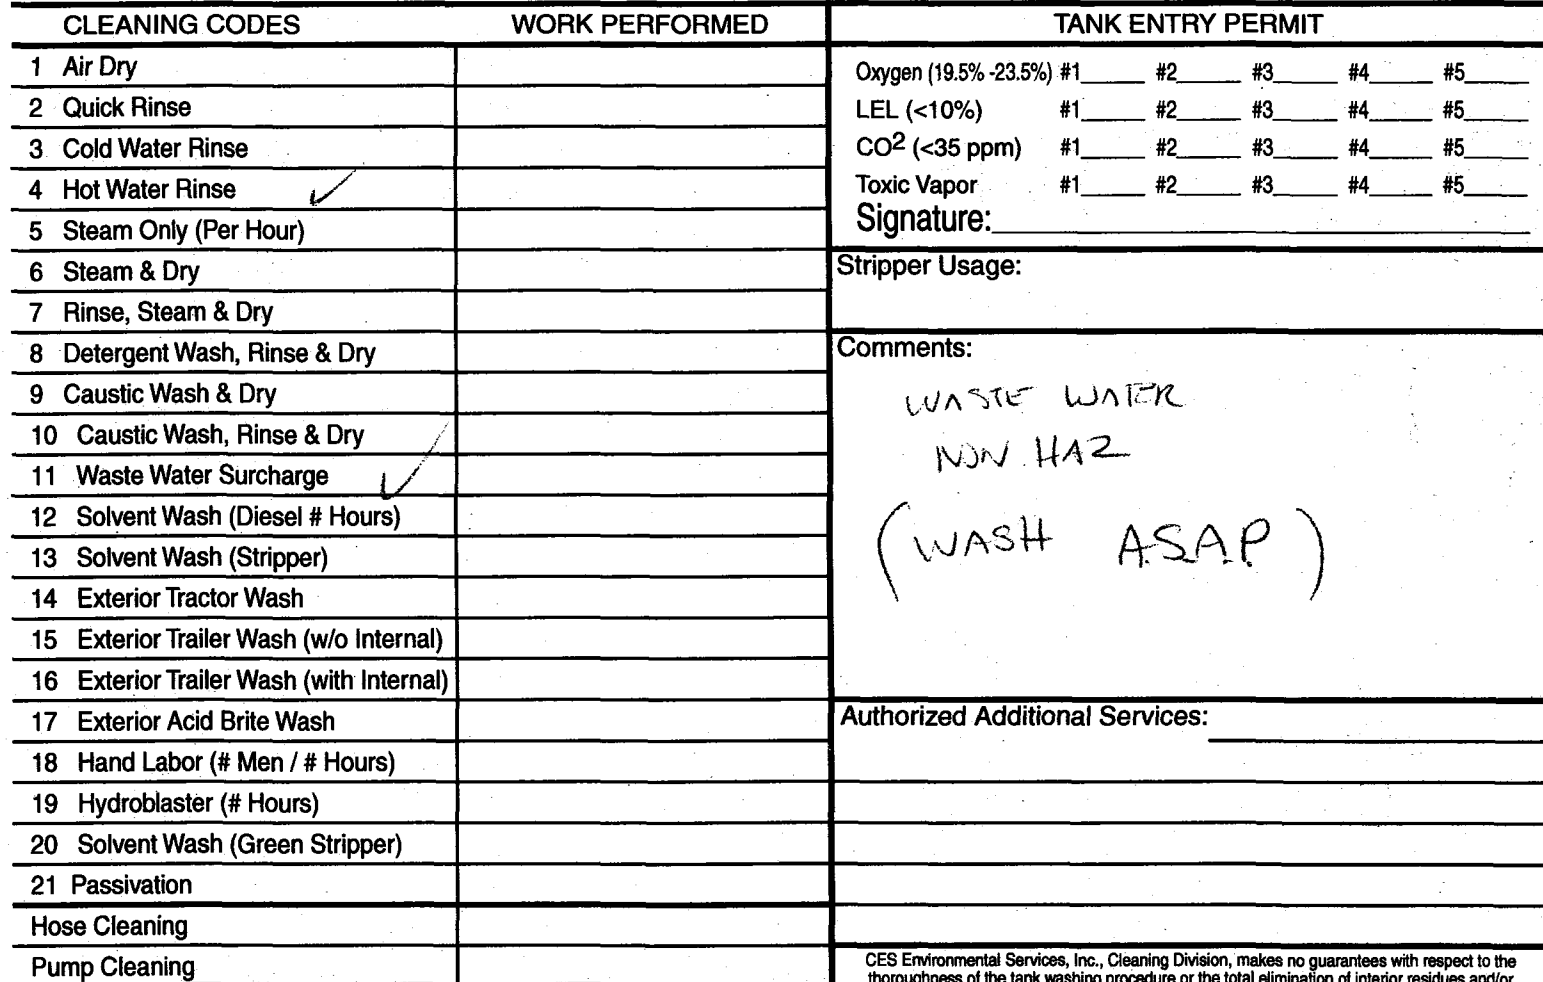 CLEANING CODES WORK PERFORMED
1 Air Dry
2 Quick Rinse
3 Cold Water Rinse
4 Hot Water Rinse ✓
5 Steam Only (Per Hour)
6 Steam & Dry
7 Rinse, Steam & Dry
8 Detergent Wash, Rinse & Dry
9 Caustic Wash & Dry
10 Caustic Wash, Rinse & Dry
11 Waste Water Surcharge ✓
12 Solvent Wash (Diesel # Hours)
13 Solvent Wash (Stripper)
14 Exterior Tractor Wash
15 Exterior Trailer Wash (w/o Internal)
16 Exterior Trailer Wash (with Internal)
17 Exterior Acid Brite Wash
18 Hand Labor (# Men / # Hours)
19 Hydroblaster (# Hours)
20 Solvent Wash (Green Stripper)
21 Passivation
Hose Cleaning
Pump Cleaning
TANK ENTRY PERMIT
Oxygen (19.5% -23.5%) #1 #2 #3 #4 #5
LEL (<10%) #1 #2 #3 #4 #5
CO2 (<35 ppm) #1 #2 #3 #4 #5
Toxic Vapor #1 #2 #3 #4 #5
Signature:
Stripper Usage:
Comments:
WASTE WATER
NON HAZ
(WASH A.S.A.P)
Authorized Additional Services:
CES Environmental Services, Inc., Cleaning Division, makes no guarantees with respect to the
thoroughness of the tank washing procedure or the total elimination of interior residues and/or